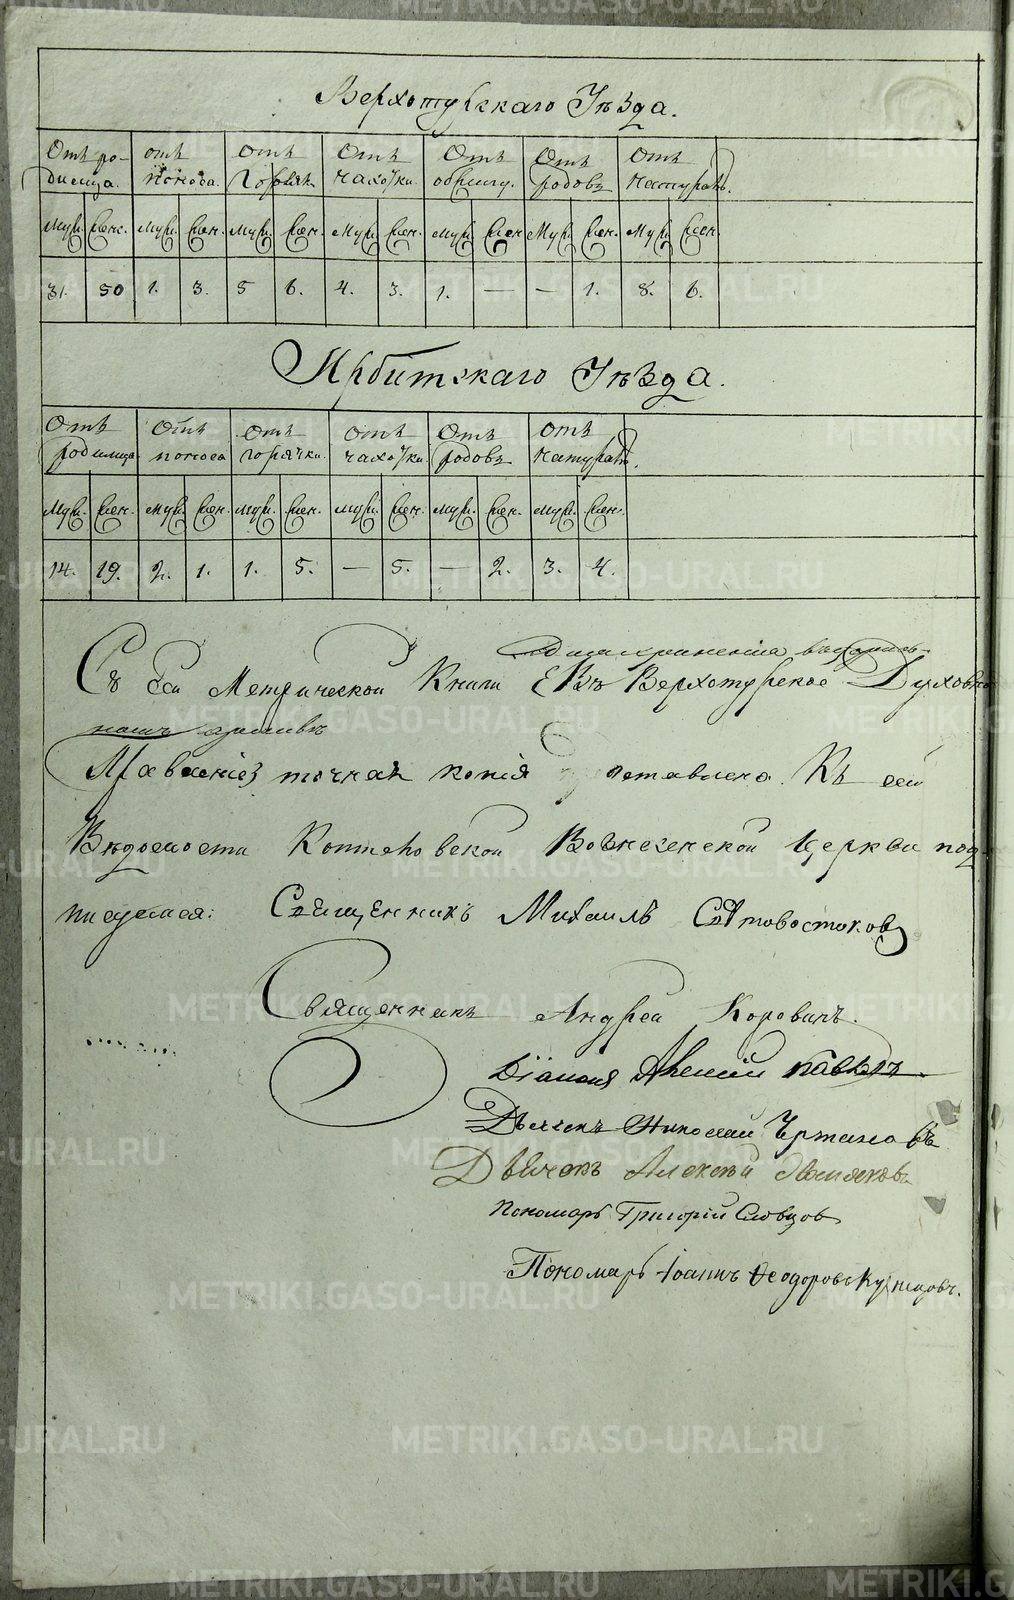 Верхотурскаго Уѣзда.
Отъ ро- отъ Отъ Отъ Отъ Отъ Отъ
димца. поноса. горячк чахотки. родовъ натураль.
Муж. Жен. Муж. Жен. Муж. Жен. Муж. Жен. Муж. Жен. Муж. Жен. Муж. Жен.
31. 50 1. 3. 5 6. 4. 3. 1. — — 1. 8. 6.
Ирбитскаго Уѣзда.
Отъ Отъ Отъ Отъ Отъ Отъ
родимца поноса горячки. чахотки родовъ натураль.
Муж. Жен. Муж. Жен. Муж. Жен. Муж. Жен. Муж. Жен. Муж. Жен.
14. 19. 2. 1. 1. 5. — 5. — 2. 3. 4.
для храненія въ
Съ сей Метрической Книги Въ Верхотурское Духовное
архивъ
Правленіе точная копія оставлена. Къ сей
Вѣдомости Коптеловской Вознесенской Церкви под-
писуемся: Священникъ Михаилъ Свѣтовостоковъ
Священникъ Андрей Коровинъ.
Діаконъ
Дьячекъ Николай
Дьячекъ Алексѣй
Пономарь Григорій Словцов
Пономарь Іоаннъ Ѳеодоровъ Кузнецовъ.
METRIKI.GASO-URAL.RU